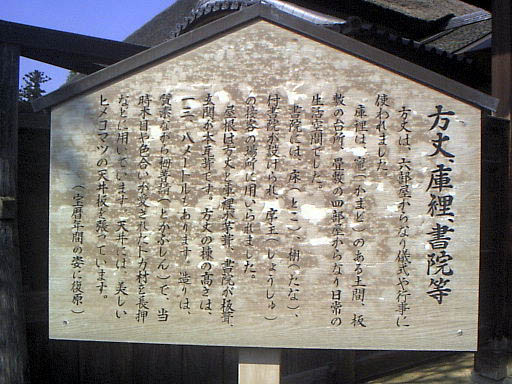 方丈、庫裡、書院等
方丈は、六部屋からなり儀式や行事に
使われました。
庫裡は、竈(かまど)のある土間、板
敷の台所、畳敷の四部屋からなり日常の
生活空間でした。
書院には、床(とこ)、棚(たな)、
付書院が設けられ、庠主(しょうしゅ)
の接客の場所に用いられました。
屋根は方丈と庫裡が茅葺、書院が板葺、
玄関が本瓦葺です。方丈の棟の高さは、
一二、八メートルもあります。造りは、
質素ながら栂普請(とがぶしん)で、当
時木目や色合いが愛されたトガ材を長押
などに用いています。天井には、美しい
ヒメコマツの天井板を張っています。
(宝暦年間の姿に復原)